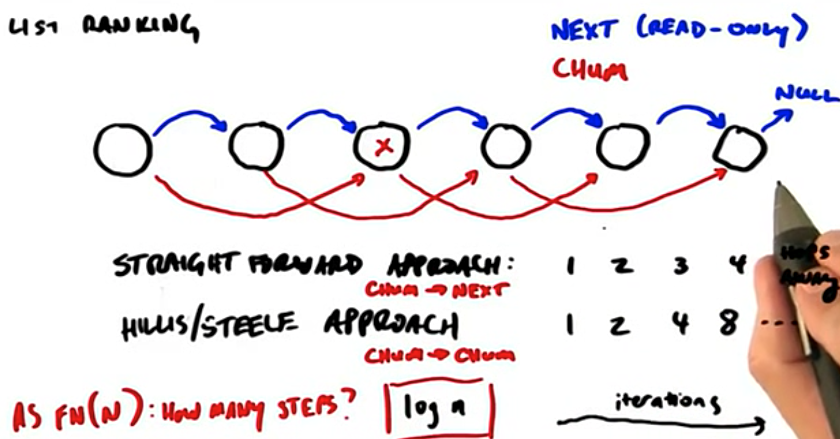 LIST RANKING
NEXT (READ-ONLY)
CHUM
NULL
X
STRAIGHT FORWARD APPROACH: 1 2 3 4 HOPS AWAY
CHUM → NEXT
HILLIS/STEELE APPROACH 1 2 4 8 ...
CHUM → CHUM
AS FN(N): HOW MANY STEPS? log n
iterations